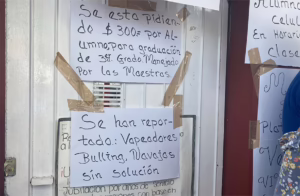 Se esta pidien
do $300= por Al
umna, para graduación
de 3er Grado Manejado
Por las Maestras.
Se han repor
tado: Vapeadores
Bulling, Navajas
sin solución
Jubilación por años de servicio
Alumna
Celul
En Horari
clase